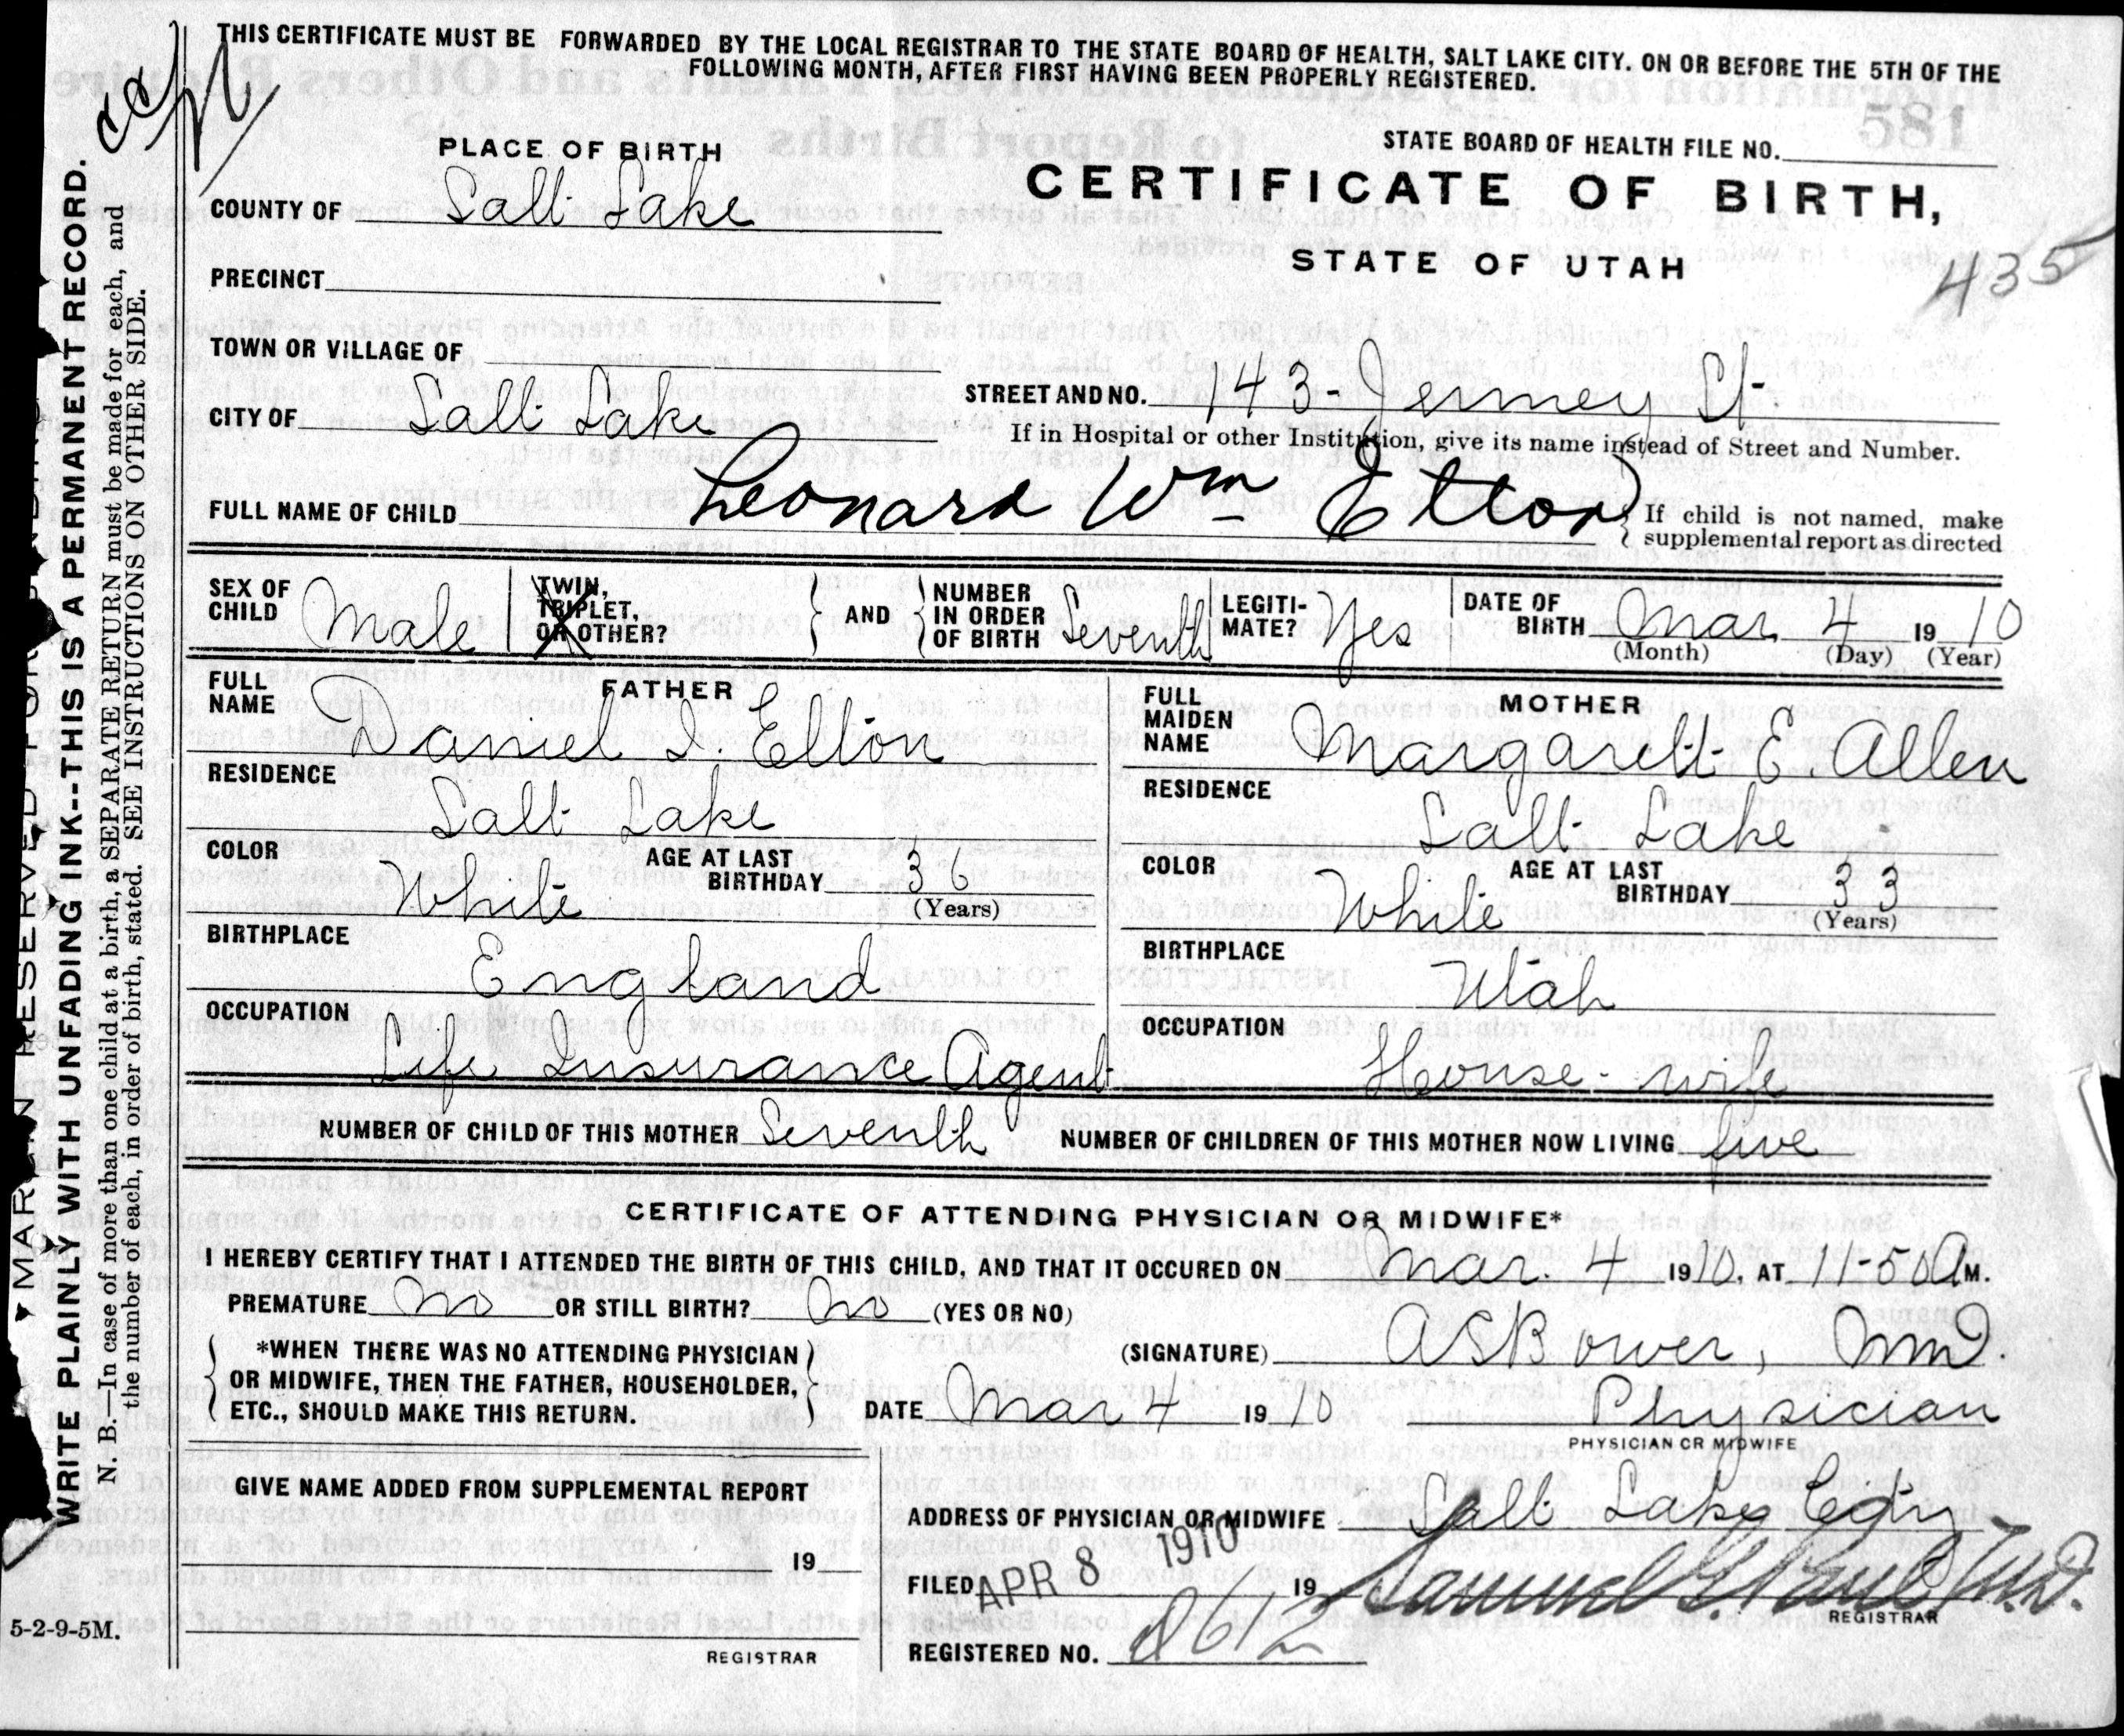 THIS CERTIFICATE MUST BE FORWARDED BY THE LOCAL REGISTRAR TO THE STATE BOARD OF HEALTH, SALT LAKE CITY. ON OR BEFORE THE 5TH OF THE
FOLLOWING MONTH, AFTER FIRST HAVING BEEN PROPERLY REGISTERED.
581
STATE BOARD OF HEALTH FILE NO.
PLACE OF BIRTH
CERTIFICATE OF BIRTH,
COUNTY OF Salt Lake
STATE OF UTAH
435
PRECINCT
TOWN OR VILLAGE OF
STREET AND NO. 143 - Jermey St
CITY OF Salt Lake
If in Hospital or other Institution, give its name instead of Street and Number.
FULL NAME OF CHILD Leonard Wm Elton
If child is not named, make
supplemental report as directed
SEX OF CHILD Male
TWIN, TRIPLET, OR OTHER?
AND
NUMBER IN ORDER OF BIRTH Seventh
LEGITI-MATE? Yes
DATE OF BIRTH Mar 4 1910
(Month) (Day) (Year)
FATHER
FULL NAME Daniel I. Elton
RESIDENCE
Salt Lake
COLOR White
AGE AT LAST BIRTHDAY 36
(Years)
BIRTHPLACE
England
OCCUPATION
Life Insurance Agent
MOTHER
FULL MAIDEN NAME Margarett E. Allen
RESIDENCE
Salt Lake
COLOR White
AGE AT LAST BIRTHDAY 33
(Years)
BIRTHPLACE
Utah
OCCUPATION
House-wife
NUMBER OF CHILD OF THIS MOTHER Seventh NUMBER OF CHILDREN OF THIS MOTHER NOW LIVING five
CERTIFICATE OF ATTENDING PHYSICIAN OR MIDWIFE*
I HEREBY CERTIFY THAT I ATTENDED THE BIRTH OF THIS CHILD, AND THAT IT OCCURED ON Mar. 4 1910, AT 11-50 A M.
PREMATURE No OR STILL BIRTH? No (YES OR NO)
*WHEN THERE WAS NO ATTENDING PHYSICIAN
OR MIDWIFE, THEN THE FATHER, HOUSEHOLDER,
ETC., SHOULD MAKE THIS RETURN.
(SIGNATURE) AS Bower, MD.
DATE Mar 4 1910 Physician
PHYSICIAN OR MIDWIFE
GIVE NAME ADDED FROM SUPPLEMENTAL REPORT
19
REGISTRAR
ADDRESS OF PHYSICIAN OR MIDWIFE Salt Lake City
FILED APR 8 1910 19 Samuel G. Paul M.D.
REGISTRAR
REGISTERED NO. 2612
5-2-9-5M.
WRITE PLAINLY WITH UNFADING INK--THIS IS A PERMANENT RECORD.
N. B.—In case of more than one child at a birth, a SEPARATE RETURN must be made for each, and
the number of each, in order of birth, stated. SEE INSTRUCTIONS ON OTHER SIDE.